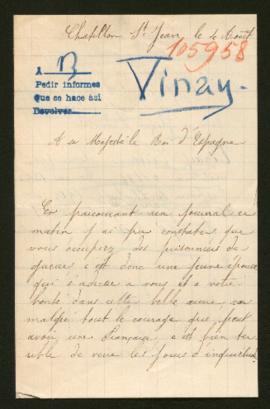 Chatillon St Jean le 4 Aout
105958
A B
Pedir informes
Que se hace asi
Devolver
Vinay.
A sa Majesté le Roi d'Espagne
En parcourant un journal ce
matin j'ai pu constater que
vous occupiez des prisonniers de
guerre c'est donc une jeune épouse
qui s'adresse a vous et a votre
bonté dans cette belle œuvre, car
malgré tout le courage que peut
avoir une Française, c'est bien ter
rible de vivre les jours d'inquiétude